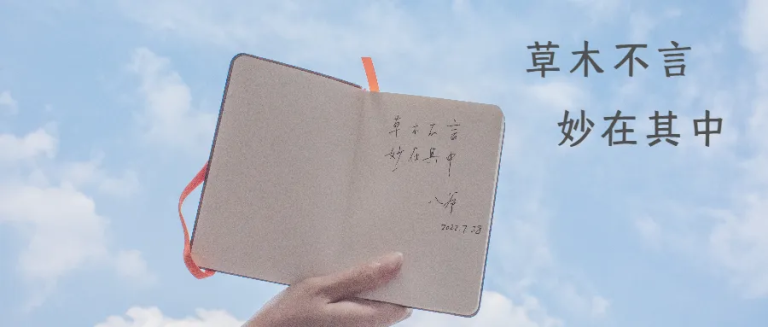 草木不言
妙在其中
草木不言
妙在其中
八爷
2022.7.28